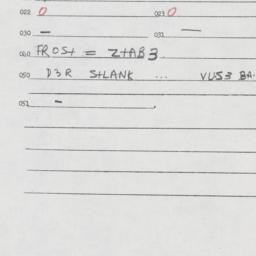 022 0 023 0
030 — 031 —
040 FROST = ZTAB3
050 D3R STLANK ... VUS3 BA.
052 -